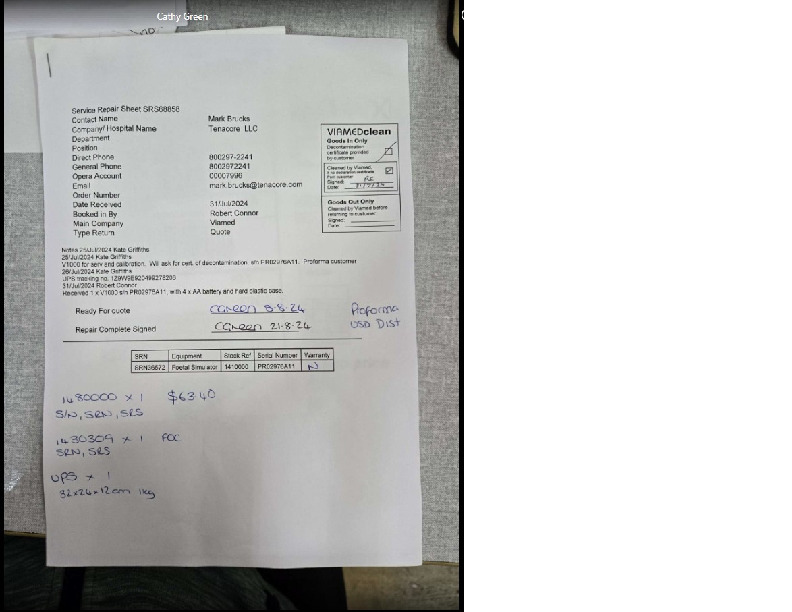 Cathy Green
Service Repair Sheet SRS68858
Contact Name Mark Brucks
Company/ Hospital Name Tenacore LLC
Department
Position
Direct Phone 800297-2241
General Phone 8002972241
Opera Account 00007996
Email mark.brucks@tenacore.com
Order Number
Date Received 31/Jul/2024
Booked in By Robert Connor
Main Company Viamed
Type Return Quote
VIAMEDclean
Goods In Only
Decontamination
certificate provided
by customer
Cleaned by Viamed,
Signed:
Date:
Goods Out Only
Cleaned by Viamed before
returning to customer
Signed:
Date:
Notes 25/Jul/2024 Kate Griffiths
25/Jul/2024 Kate Griffiths
V1000 for serv and calibration. Will ask for cert. of decontamination. s/n PR02976A11. Proforma customer
26/Jul/2024 Kate Griffiths
UPS tracking no.
31/Jul/2024 Robert Connor
Received 1 x V1000 s/n PR02976A11, with 4 x AA battery and hard plastic case.
Ready For quote CGreen 8-8-24
Proforma
USD Dist
Repair Complete Signed CGreen 21-8-24
SRN Equipment Stock Ref Serial Number Warranty
SRN36872 Foetal Simulator 1410000 PR02976A11 N
1480000 x 1 $63.40
S/N, SRN, SRS
1430309 x 1 FOC
SRN, SRS
UPS x 1
32x24x12cm 1kg